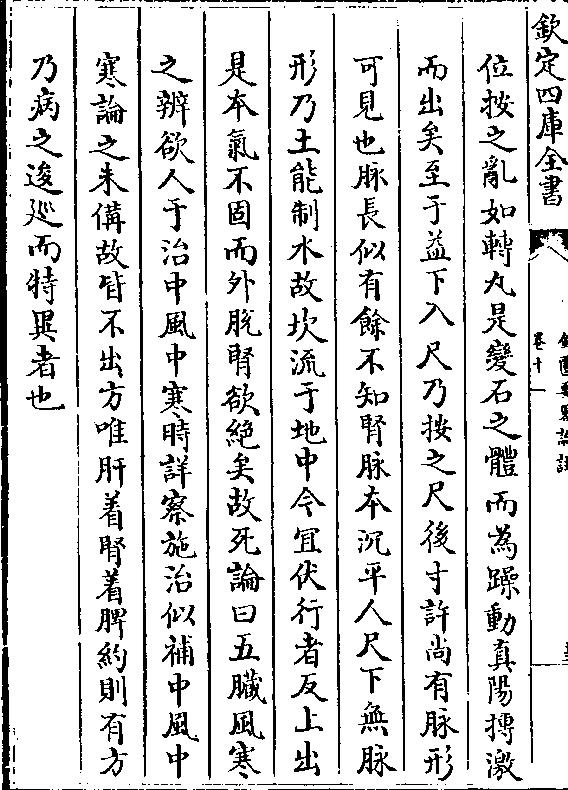 欽定四庫全書
卷十一
位按之亂如轉丸是變石之體而為躁動真陽摶激
而出矣至于益下入尺乃按之尺後寸許尚有脉形
可見也脉長似有餘不知腎脉本沉平人尺下無脉
形乃土能制水故坎流于地中今宜伏行者反上出
是本氣不固而外脫腎欲絶矣故死論曰五臟風寒
之辨欲人于治中風中寒時詳察施治似補中風中
寒論之未備故皆不出方唯肝着腎着脾約則有方
乃病之逡廵而特異者也